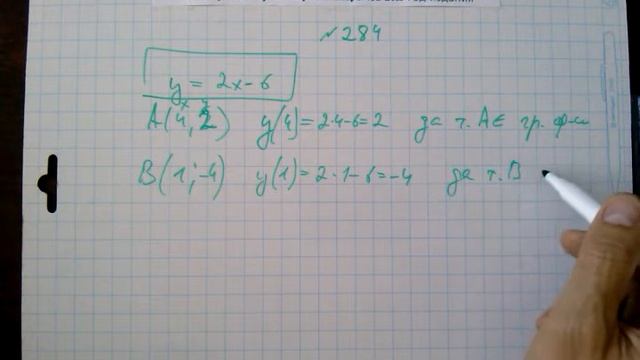 №284
y = 2x-6
x y
A(4; 2) y(4)=2·4-6=2 да т. A∈ гр. ф-и
B(1;-4) y(1)=2·1-6=-4 да т. B